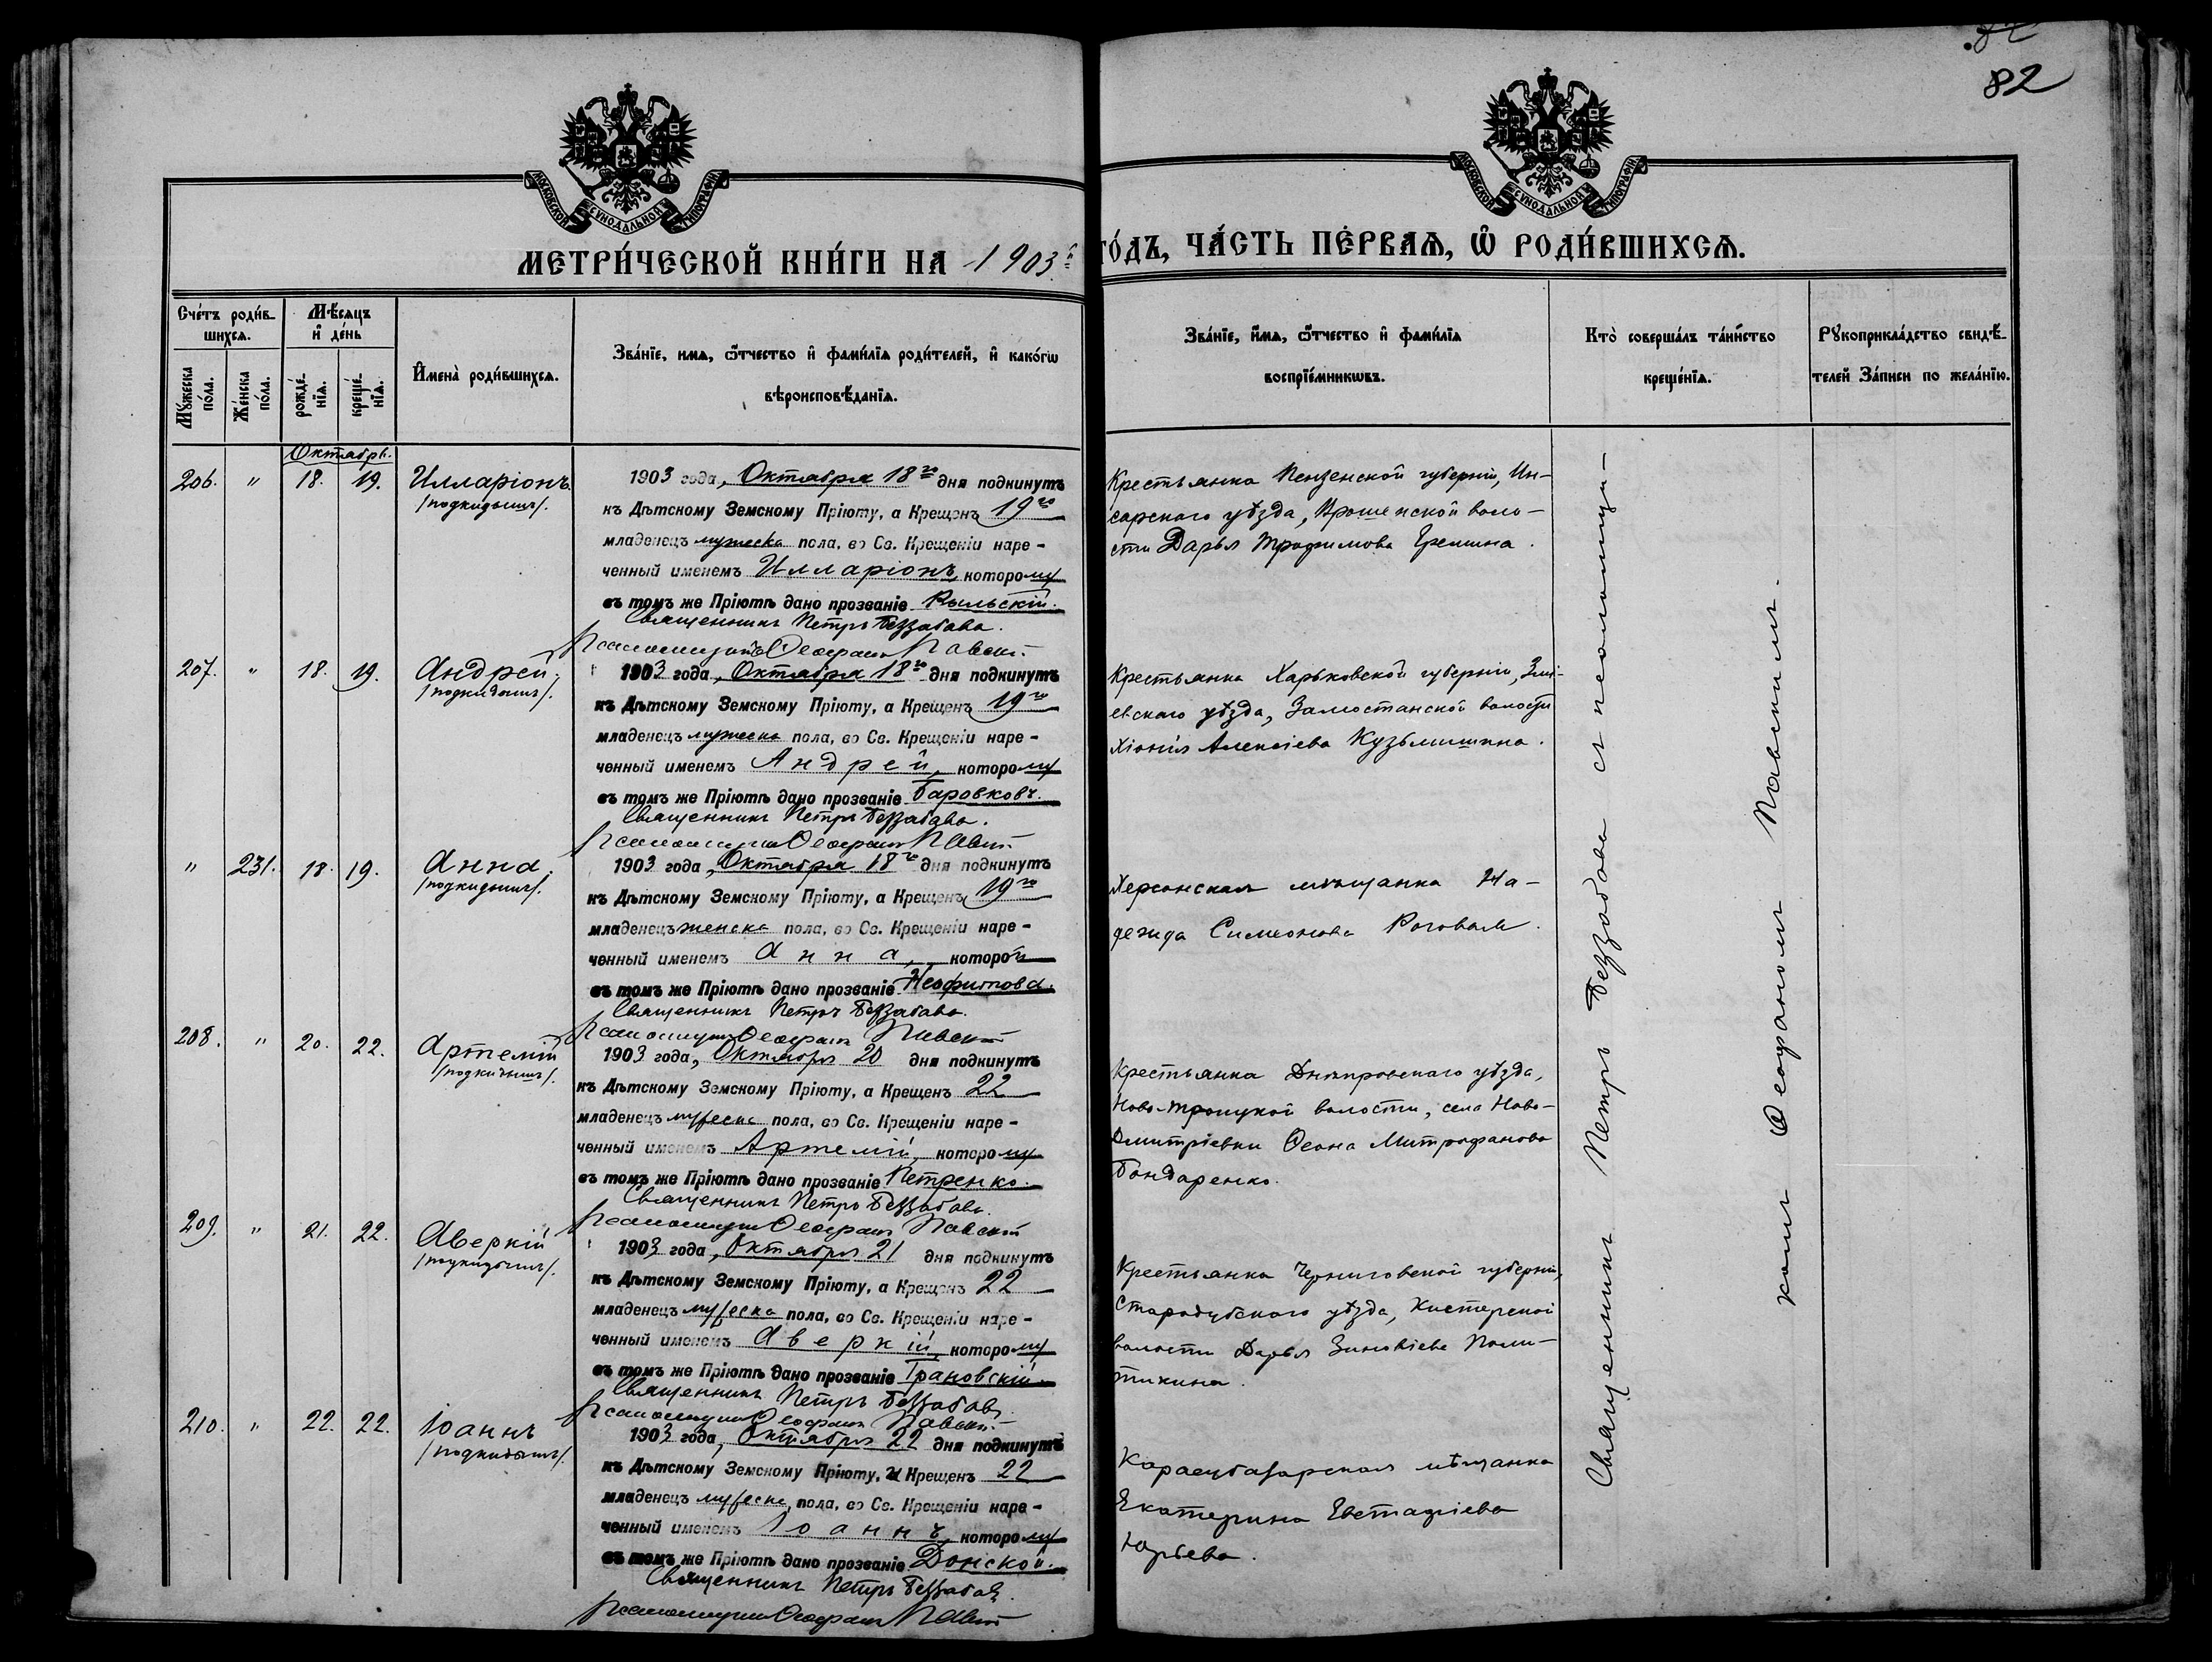 82
МОСКОВСКОЙ СѴНОДАЛЬНОЙ ТИПОГРАФІИ
МОСКОВСКОЙ СѴНОДАЛЬНОЙ ТИПОГРАФІИ
МЕТРИ́ЧЕСКОЙ КНИ́ГИ НА 1903й
ГО́ДЪ, ЧА́СТЬ ПЕ́РВАѦ, Ѡ҆ РОДИ́ВШИХСѦ.
Сче́тъ роди́в-
шихсѧ.
Мꙋжеска по́ла.
Же́нска по́ла.
Мѣ́сѧцъ
и҆ де́нь
рожде́-
нїѧ.
креще́-
нїѧ.
И҆мена̀ роди́вшихсѧ.
Зва́нїе, имѧ, ѻ҆́тчество и҆ фами́лїѧ роди́телей, и҆ како́гѡ
вѣроисповѣ́данїѧ.
Зва́нїе, и҆́мѧ, ѻ҆́тчество и҆ фами́лїѧ
воспрїе́мникѡвъ.
Кто̀ соверша́лъ та́инство
креще́нїѧ.
Рꙋкоприкла́дство свидѣ́-
телей За́писи по жела́нїю.
Октябрь.
206. " 18. 19. Илларіонъ
/подкидышъ/.
1903 года, Октября 18го дня подкинутъ
къ Дѣтскому Земскому Пріюту, а Крещенъ 19го
младенецъ мужеска пола, во Св. Крещеніи наре-
ченный именемъ Илларіонъ, которому
въ томъ же Пріютѣ дано прозваніе Рыльскій.
Священникъ Петръ Беззабава.
Псаломщикъ Ѳеофанъ Павскій
Крестьянка Пензенской губерніи, Ин-
сарскаго уѣзда, воло-
сти Дарья Трофимова Еремина.
207. " 18. 19. Андрей
/подкидышъ/.
1903 года, Октября 18го дня подкинутъ
къ Дѣтскому Земскому Пріюту, а Крещенъ 19го
младенецъ мужеска пола, во Св. Крещеніи наре-
ченный именемъ Андрей, которому
въ томъ же Пріютѣ дано прозваніе Баровковъ.
Священникъ Петръ Беззабава.
Псаломщикъ Ѳеофанъ Павскій
Крестьянка Харьковской губерніи, Змі-
евскаго уѣзда, Замостанской волости
Хіонія Алексіева Кузьмишина.
" 231. 18. 19. Анна
/подкидышъ/.
1903 года, Октября 18го дня подкинутъ
къ Дѣтскому Земскому Пріюту, а Крещенъ 19го
младенецъ женска пола, во Св. Крещеніи наре-
ченный именемъ Анна, которой
въ томъ же Пріютѣ дано прозваніе Неофитова.
Священникъ Петръ Беззабава.
Псаломщикъ Ѳеофанъ Павскій
Херсонская мѣщанка На-
дежда Симеонова Роговая.
208. " 20. 22. Артемій
/подкидышъ/.
1903 года, Октября 20 дня подкинутъ
къ Дѣтскому Земскому Пріюту, а Крещенъ 22
младенецъ мужеска пола, во Св. Крещеніи наре-
ченный именемъ Артемій, которому
въ томъ же Пріютѣ дано прозваніе Петренко.
Священникъ Петръ Беззабава.
Псаломщикъ Ѳеофанъ Павскій
Крестьянка Днѣпровскаго уѣзда,
Ново-Троицкой волости, села Ново-
Дмитріевки Ѳеона Митрофанова
Бондаренко.
209. " 21. 22. Аверкій
/подкидышъ/.
1903 года, Октября 21 дня подкинутъ
къ Дѣтскому Земскому Пріюту, а Крещенъ 22
младенецъ мужеска пола, во Св. Крещеніи наре-
ченный именемъ Аверкій, которому
въ томъ же Пріютѣ дано прозваніе Грановскій.
Священникъ Петръ Беззабава
Псаломщикъ Ѳеофанъ Павскій
Крестьянка Черниговской губерніи,
Стародубскаго уѣзда, Кистерской
волости Дарья Зиновіева Поли-
тикина.
210. " 22. 22. Іоаннъ
/подкидышъ/.
1903 года, Октября 22 дня подкинутъ
къ Дѣтскому Земскому Пріюту, а Крещенъ 22
младенецъ мужеска пола, во Св. Крещеніи наре-
ченный именемъ Іоаннъ, которому
въ томъ же Пріютѣ дано прозваніе Донской.
Священникъ Петръ Беззабава.
Псаломщикъ Ѳеофанъ Павскій
Карасубазарская мѣщанка
Екатерина Евстафіева
Юрьева.
Священникъ Петръ Беззабава съ псаломщи-
комъ Ѳеофаномъ Павскимъ.